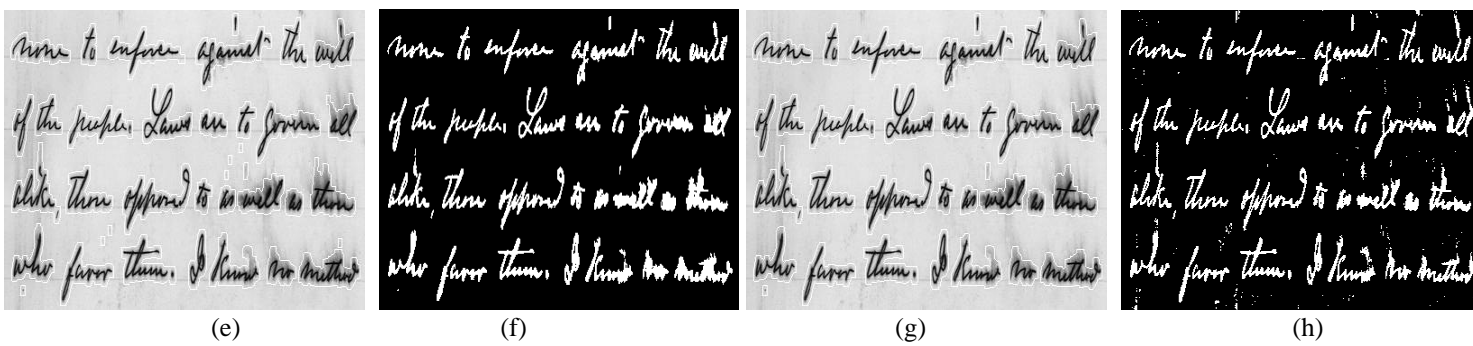 none to enforce against the will
of the people. Laws are to govern all
alike, those opposed to as well as those
who favor them. I know no method
none to enforce against the will
of the people. Laws are to govern all
alike, those opposed to as well as those
who favor them. I know no method
none to enforce against the will
of the people. Laws are to govern all
alike, those opposed to as well as those
who favor them. I know no method
none to enforce against the will
of the people. Laws are to govern all
alike, those opposed to as well as those
who favor them. I know no method
(e) (f) (g) (h)